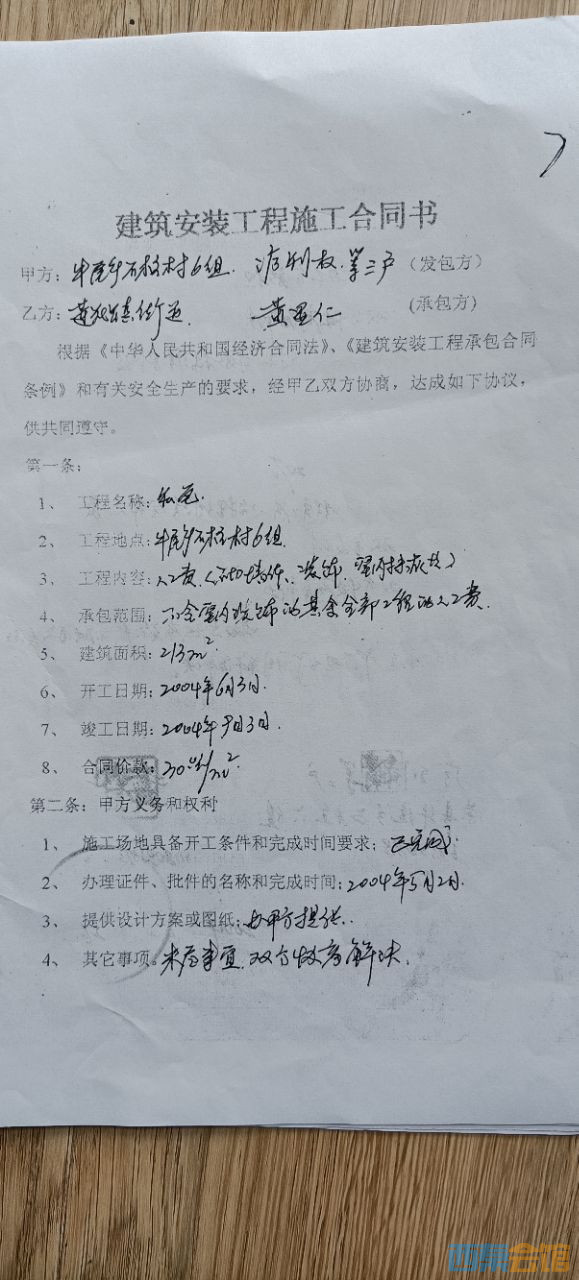 建筑安装工程施工合同书
甲方：牛尾乡石柱村6组. 利权.等三户（发包方）
乙方： 镇街 黄 仁 （承包方）
根据《中华人民共和国经济合同法》、《建筑安装工程承包合同
条例》和有关安全生产的要求，经甲乙双方协商，达成如下协议，
供共同遵守。
第一条：
1、 工程名称：私宅.
2、 工程地点：牛尾乡石柱村6组.
3、 工程内容：人工费（ 墙体、装饰、室内 ）
4、 承包范围：不含室内装饰的其余全部工程的人工费.
5、 建筑面积：213m².
6、 开工日期：2004年6月3日.
7、 竣工日期：2004年9月3日.
8、 合同价款： /m².
第二条：甲方义务和权利
1、 施工场地具备开工条件和完成时间要求：已完成.
2、 办理证件、批件的名称和完成时间：2004年5月2日.
3、 提供设计方案或图纸：由甲方提供.
4、 其它事项。未尽事宜.双方协商解决.
西祠会馆